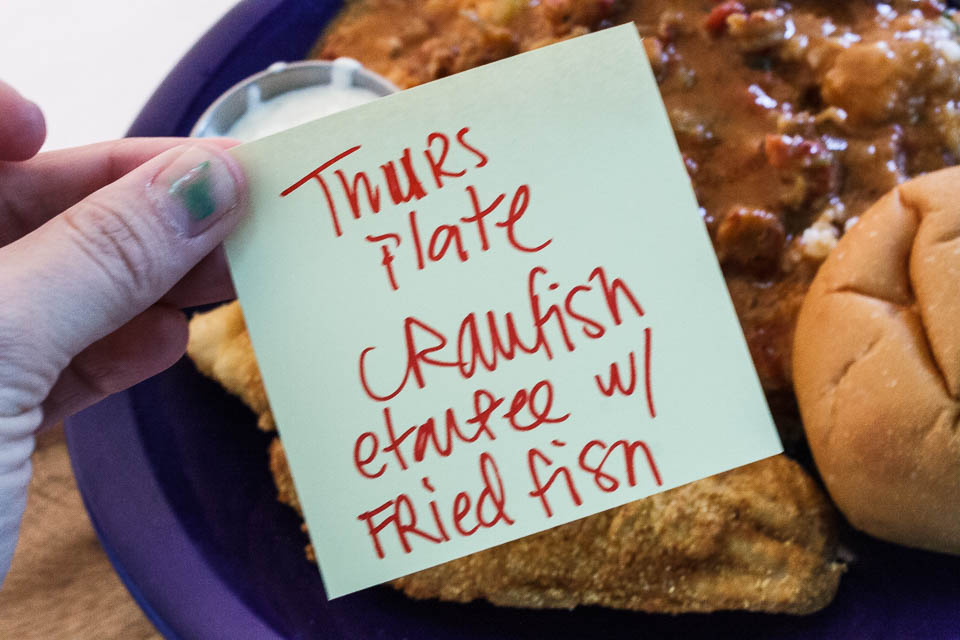 Thurs
Plate
Crawfish
etautee w/
Fried fish